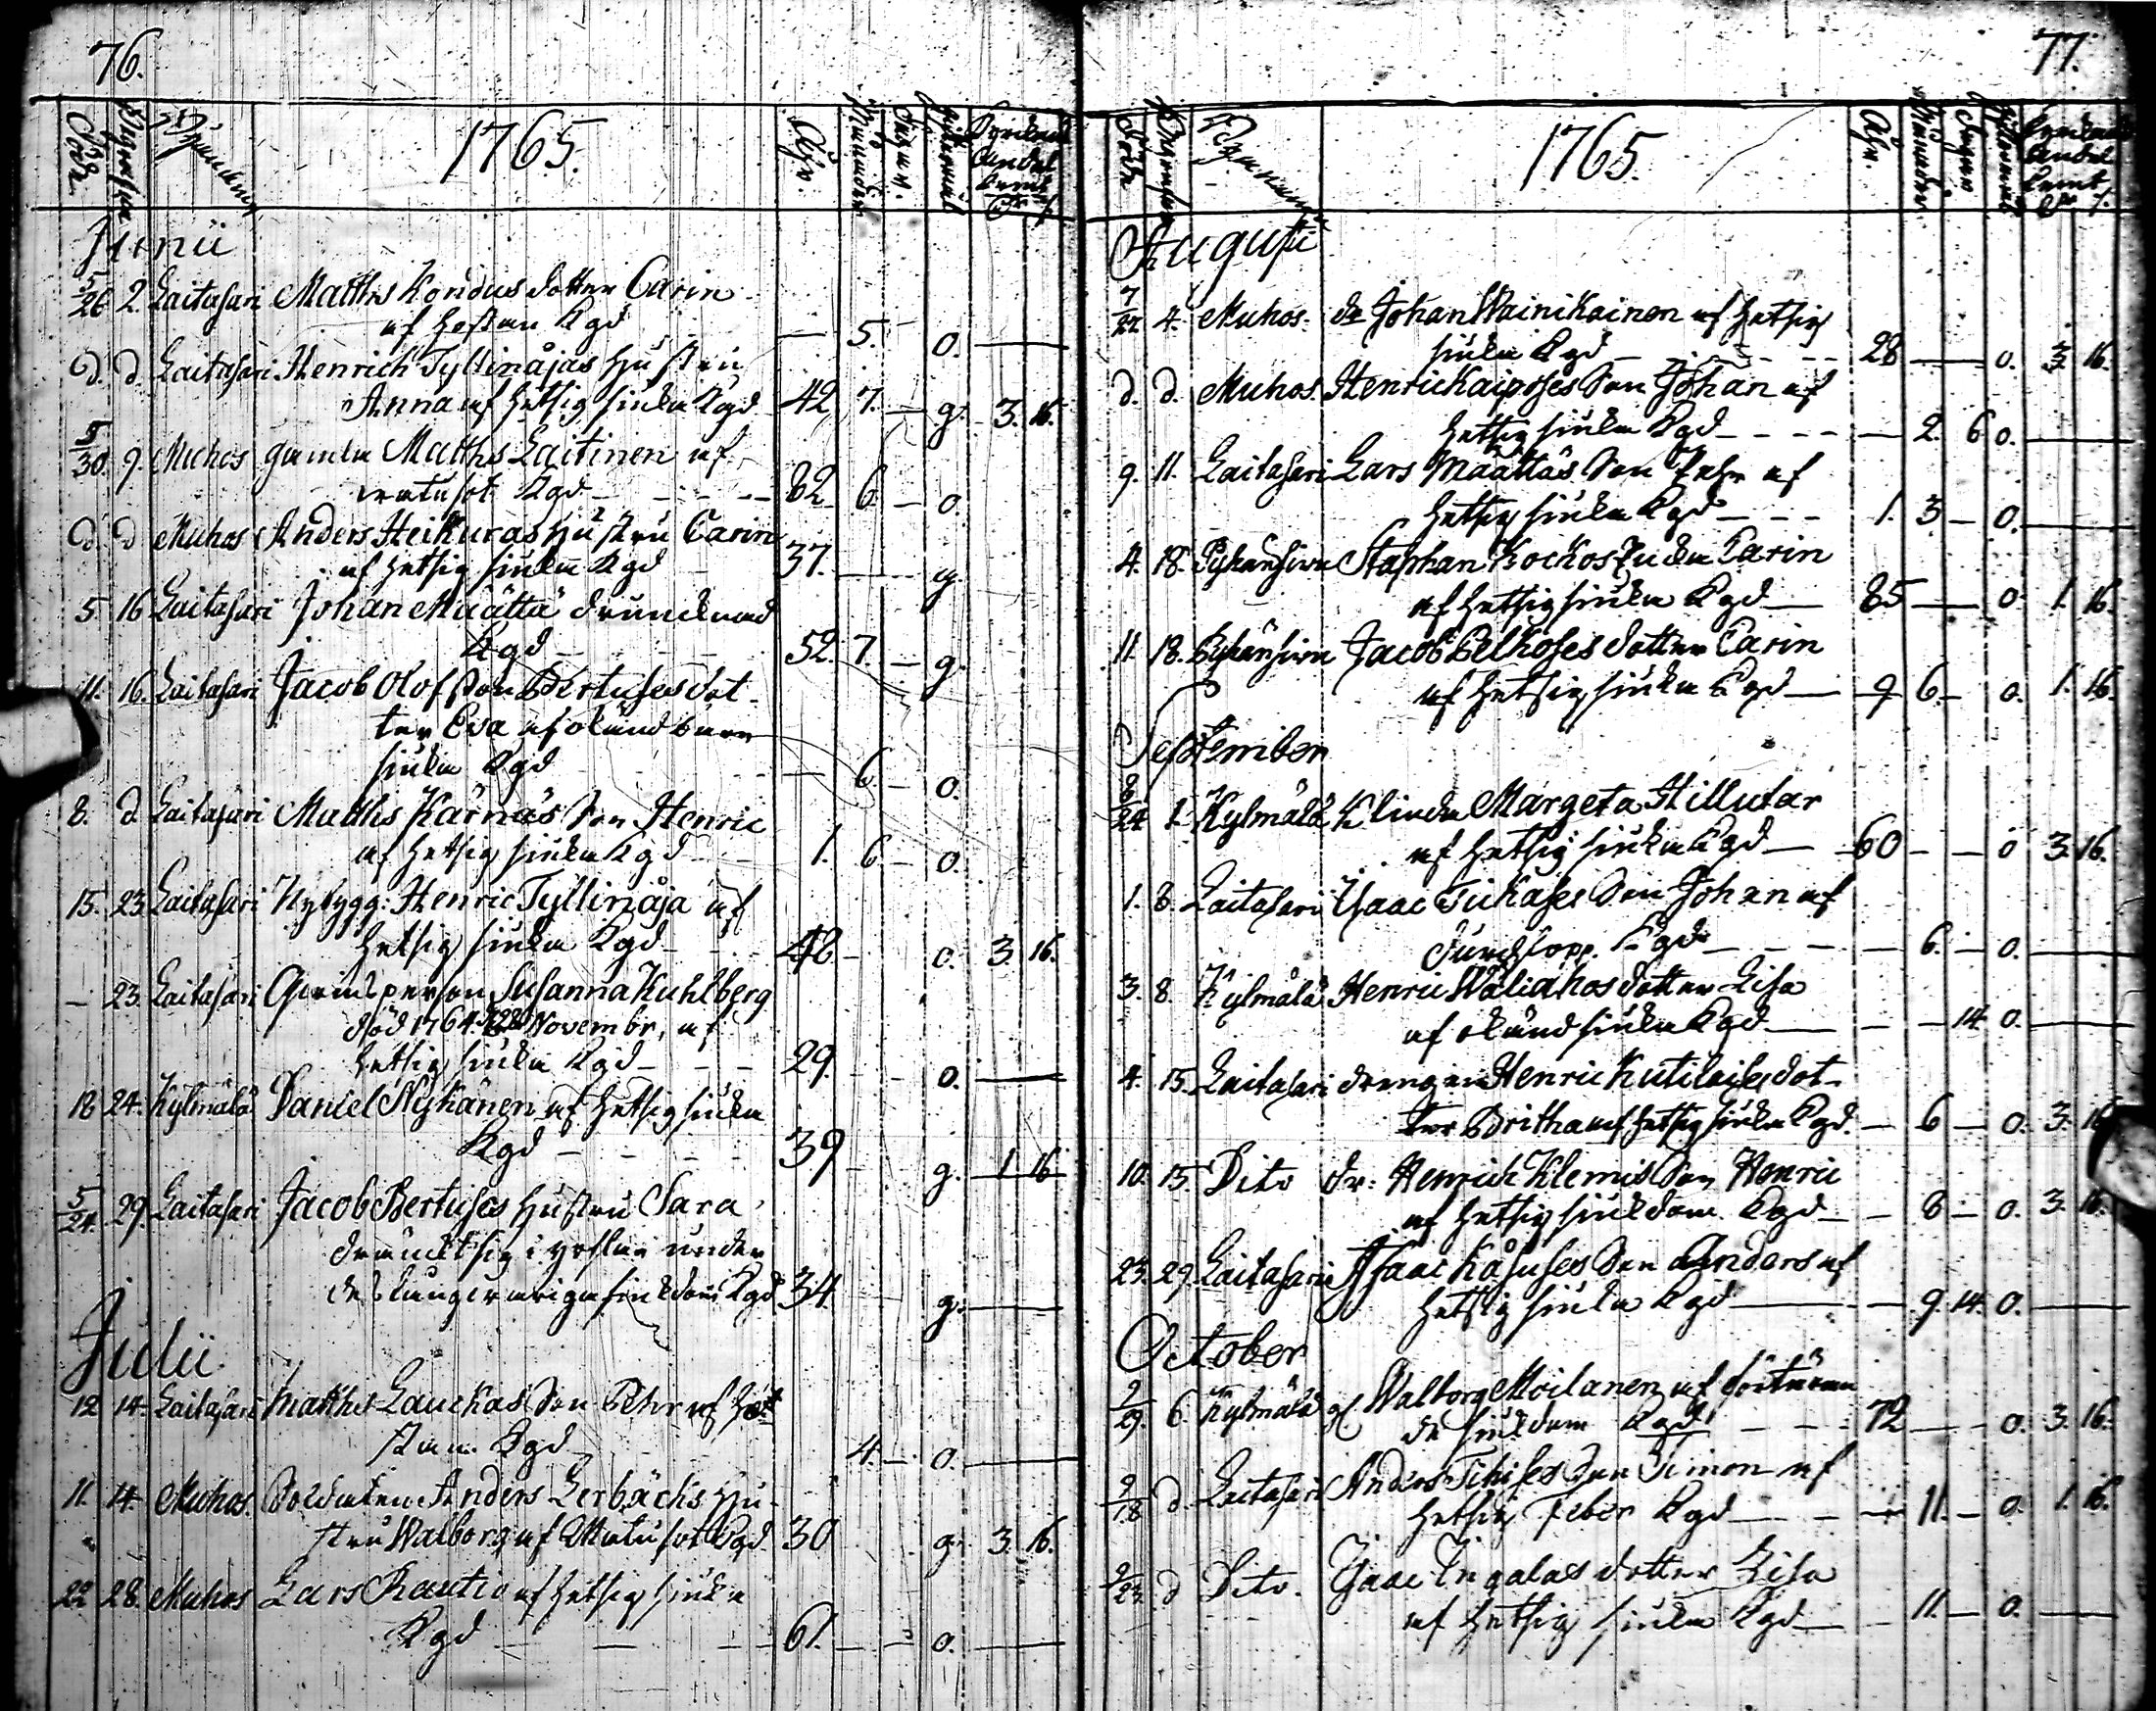 76.
Död. Begrafne Byarnas Namn 1765. Åhr. Månader. Dagar. gift ogift Kyrckans andel kmt Dr /.
Junii
5/26 2. Laitasari Matths Kondus dotter Carin
af hostan Kgd — 5. o. —
d. d. Laitasari Henrich Tyllinåjas Hustru
Anna af hetsig siuka Kgd 42 7. — g. 3. 16.
5/30 9. Muhos gamla Matths Laitinen af
Kgd 82 6 — o.
d d Muhos Anders Heikuras Hustru Carin
af hetsig siuka Kgd 37. — g.
5 16 Laitasari Johan Määttä drunknad
Kgd 52. 7. — g.
11. 16. Laitasari Jacob Olofsson Bertuses dot-
ter Eva af okänd barn
siuka Kgd — 6 — o.
8. d. Laitasari Matths Kärnäs Son Henric
af hetsig siuka Kgd 1. 6 — o.
15. 23 Laitasari Nybygg: Henric Tyllinåja af
hetsig siuka Kgd 48. — o. 3 16.
— 23. Laitasari Qvinsperson Susanna Kuhlberg
död 1764. Novembr, af
hetsig siuka Kgd 29. o. —
18 24. Kylmälä Daniel Nykänen af hetsig siuka
Kgd 39 g. 1 16
5/24. 29. Laitasari Jacob Bertuses Hustru Sara
dränckt sig i under
des siukdom Kgd 34. g. —
Julii
12 14. Laitasari Matths Lauckas Son Pehr af ho-
stan. Kgd 4. — o. —
11. 14. Muhos. Soldaten Anders Lerbäcks Hu-
stru Walborg af Kgd 30 g. 3. 16.
22 28. Muhos Lars Rautio af hetsig siuka
Kgd 61. — — o. —
77.
Död Begrafne Byarnas Namn 1765. Åhr. Månader Dagar gift ogift Kyrckans andel kmt Dr /.
Augusti
7/22 4. Muhos. dr Johan Wainikainen af hetsig
siuka Kgd 28 — o. 3. 16.
d. d. Muhos. Henric Kaiposes Son Johan af
hetsig siuka Kgd — 2. 6 o. —
9. 11. Laitasari Lars Määttäs Son Pehr af
hetsig siuka Kgd 1. 3 — o. —
4. 18. Staphan Kockos Enka Carin
af hetsig siuka Kgd 85 — o. 1. 16.
11. 18. Jacob Pelkoses dotter Carin
af hetsig siuka Kgd — 9 6. — o. 1. 16.
September
8/24 1. Kylmälä Margeta Hillutar
af hetsig siuka Kgd — 60 — — o 3. 16.
1. 8. Laitasari Isaac Tickases Son Johan af
Durchlopp. Kgd — 6. — o. —
3. 8. Kylmälä Henric Wäliahos dotter Lisa
af okänd siuka Kgd — — 14. o. —
4. 15. Laitasari drengen Henric Kutilailes dot-
ter Britha af hetsig siuka Kgd. — 6 — o. 3. 16
10. 15. Dito dr: Henrich Klemis Son Henric
af hetsig siukdom. Kgd — 8 — o. 3. 16.
23. 29. Laitasari Isaac Kåsuses Son Anders af
hetsig siuka Kgd — 9. 14. o. —
October
9/29. 6. Kylmälä gl Walborg Moilanen af
de siukdom Kgd 72 — o. 3. 16.
9/18 d. Laitasari Anders Tihises Son Simon af
hetsig Feber Kgd — 11. — o. 1. 16.
9/23. d Dito. Isaac Ingalas dotter Lisa
af hetsig siuka Kgd — 11. — o. —